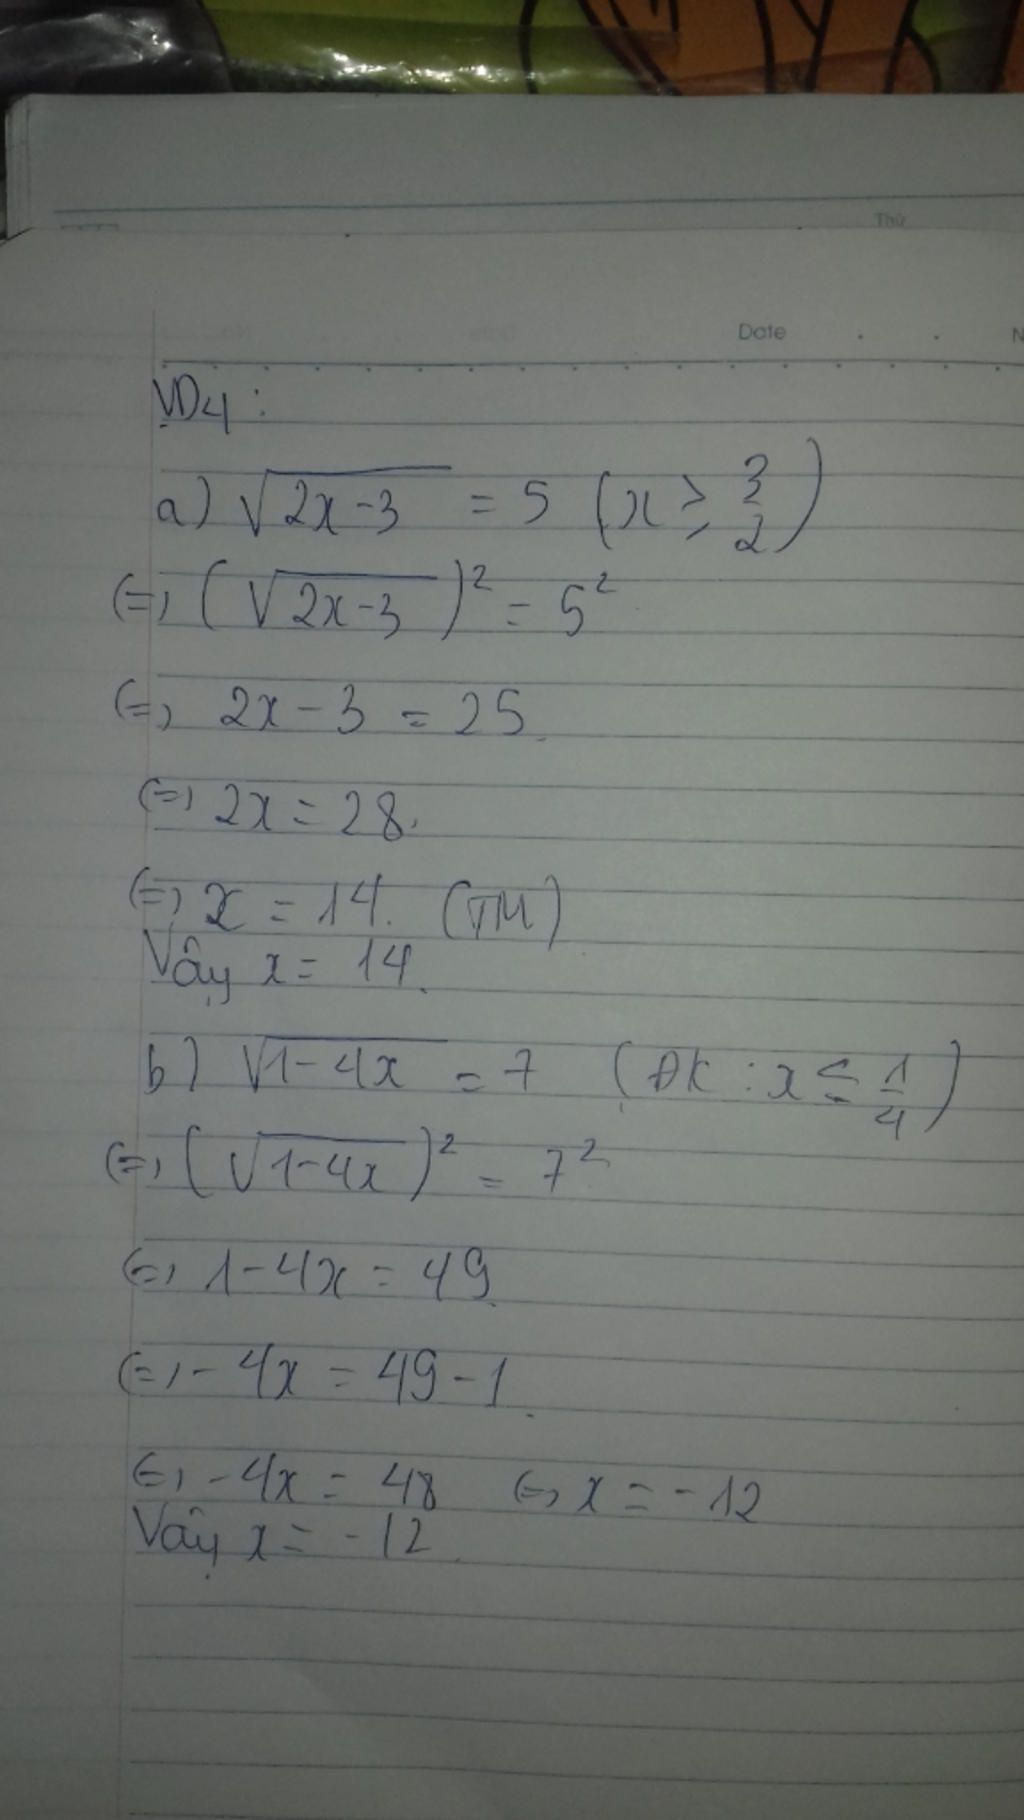 Thứ
Date
N
VD4 :
a) √(2x-3) = 5 (x ≥ 3/2)
(=) (√(2x-3))² = 5²
(=) 2x - 3 = 25.
(=) 2x = 28.
(=) x = 14. (TM)
Vậy x = 14.
b) √(1-4x) = 7 (ĐK : x ≤ 1/4)
(=) (√(1-4x))² = 7²
(=) 1 - 4x = 49.
(=) - 4x = 49 - 1.
(=) - 4x = 48 (=) x = - 12
Vậy x = - 12.